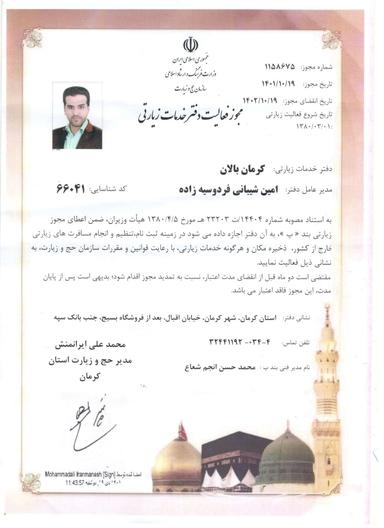 جمهوری اسلامی ایران
وزارت فرهنگ و ارشاد اسلامی
سازمان حج و زیارت
مجوز فعالیت دفتر خدمات زیارتی
شماره مجوز: ۱۱۵۸۶۷۵
تاریخ مجوز: ۱۴۰۱/۱۰/۱۹
تاریخ انقضای مجوز: ۱۴۰۲/۱۰/۱۹
تاریخ شروع فعالیت زیارتی
:۱۳۸۰/۰۳/۰۱
دفتر خدمات زیارتی: کرمان بالان
مدیر عامل دفتر: امین شیبانی فردوسیه زاده
کد شناسایی: ۶۶۰۴۱
به استناد مصوبه شماره ۱۴۴۰۴/ت ۲۳۲۰۳ هـ مورخ ۱۳۸۰/۴/۵ هیأت وزیران، ضمن اعطای مجوز
زیارتی بند « ب »، به آن دفتر اجازه داده می شود در زمینه ثبت نام،تنظیم و انجام مسافرت های زیارتی
خارج از کشور، ذخیره مکان و هرگونه خدمات زیارتی، با رعایت قوانین و مقررات سازمان حج و زیارت، به
نشانی ذیل فعالیت نمایید.
مقتضی است دو ماه قبل از انقضای مدت اعتبار، نسبت به تمدید مجوز اقدام شود؛ بدیهی است پس از پایان
مدت، این مجوز فاقد اعتبار می باشد.
نشانی دفتر: استان کرمان، شهر کرمان، خیابان اقبال، بعد از فروشگاه بسیج، جنب بانک سپه
تلفن تماس: ۰۳۴-۳۲۴۴۱۱۹۲-۴
نام مدیر فنی بند ب: محمد حسن انجم شعاع
محمد علی ایرانمنش
مدیر حج و زیارت استان
کرمان
امضا شده توسط Mohammadali Iranmanesh [Sign]
۱۴۰۱ دی ۱۹, دوشنبه 11:43:57